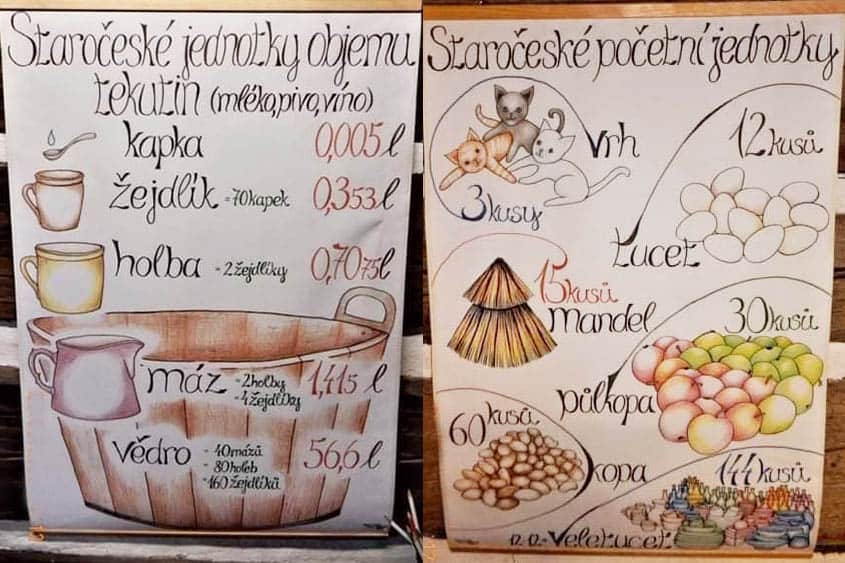 Staročeské jednotky objemu
tekutin (mléko, pivo, víno)
kapka 0,005 l
žejdlík = 70 kapek 0,353 l
holba = 2 žejdlíky 0,7075 l
máz = 2 holby 1,415 l
= 4 žejdlíky
vědro = 40 mázů 56,6 l
= 80 holeb
= 160 žejdlíků
Staročeské početní jednotky
vrh
3 kusy
12 kusů
tucet
15 kusů
mandel
30 kusů
půlkopa
60 kusů
kopa
144 kusů
12·12 = Veletucet